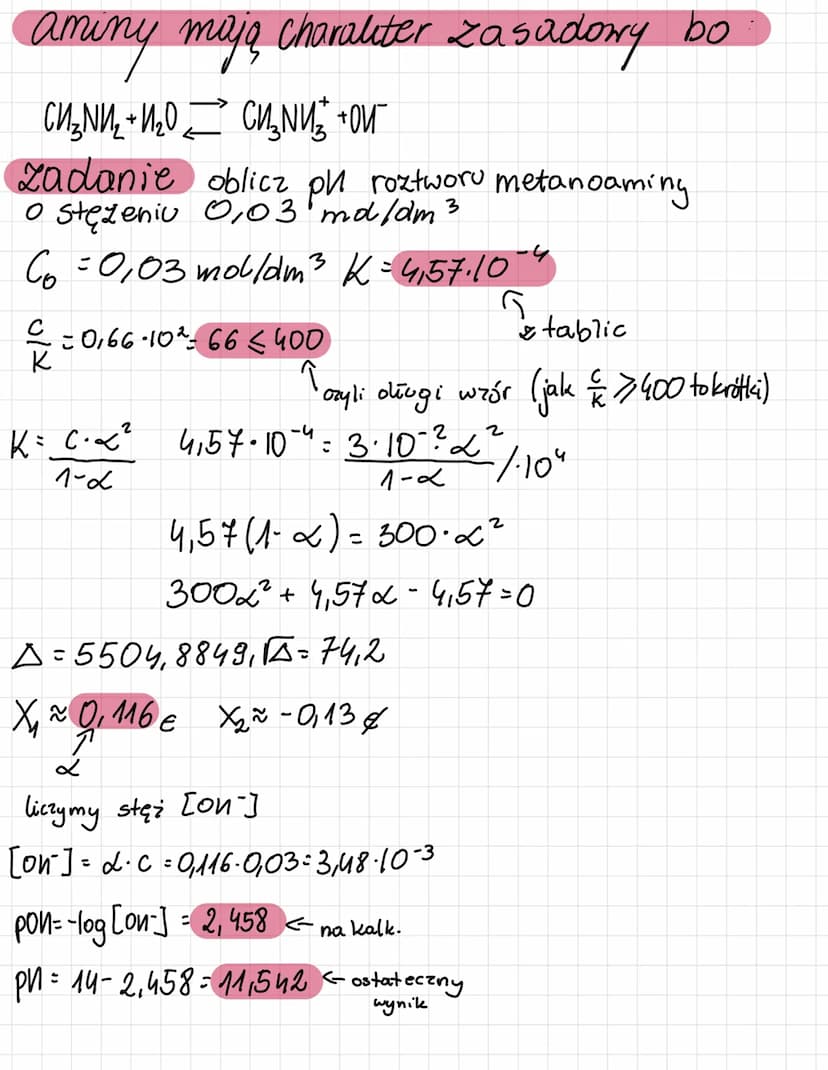 aminy mają charakter zasadowy bo :
CH₃NH₂ + H₂O ⇄ CH₃NH₃⁺ + OH⁻
zadanie oblicz pH roztworu metanoaminy
o stężeniu 0,03 mol/dm³
C₀ = 0,03 mol/dm³ K = 4,57·10⁻⁴
z tablic
c/K = 0,66·10² = 66 ≤ 400
czyli długi wzór (jak c/K ≥ 400 to krótki)
K = c·α²/1-α 4,57·10⁻⁴ = 3·10⁻²α²/1-α /·10⁴
4,57(1-α) = 300·α²
300α² + 4,57α - 4,57 = 0
Δ = 5504,8849, √Δ = 74,2
X₁ ≈ 0,116 ∈ X₂ ≈ -0,13 ∉
α
liczymy stęż [OH⁻]
[OH⁻] = α·c = 0,116·0,03 = 3,48·10⁻³
pOH = -log[OH⁻] = 2,458 ← na kalk.
pH = 14 - 2,458 = 11,542 ← ostateczny
wynik